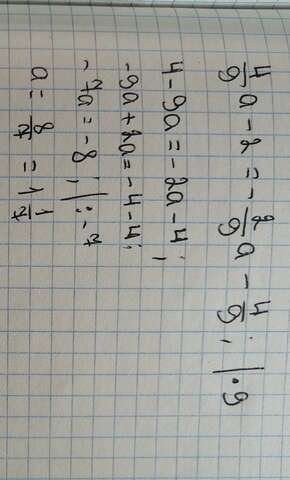 4/9 a - 2 = - 2/9 a - 4/9; | · 9
4 - 9a = - 2a - 4;
-9a + 2a = - 4 - 4;
-7a = - 8; | : -7
a = 8/7 = 1 1/7